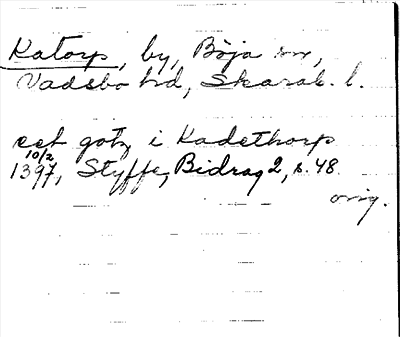 Katorp, by, Böja sn,
Vadsbo hd, Skarab. l.
eet gotz i Kadethorp
10/2
1397, Styffe, Bidrag 2, s. 48.
orig.